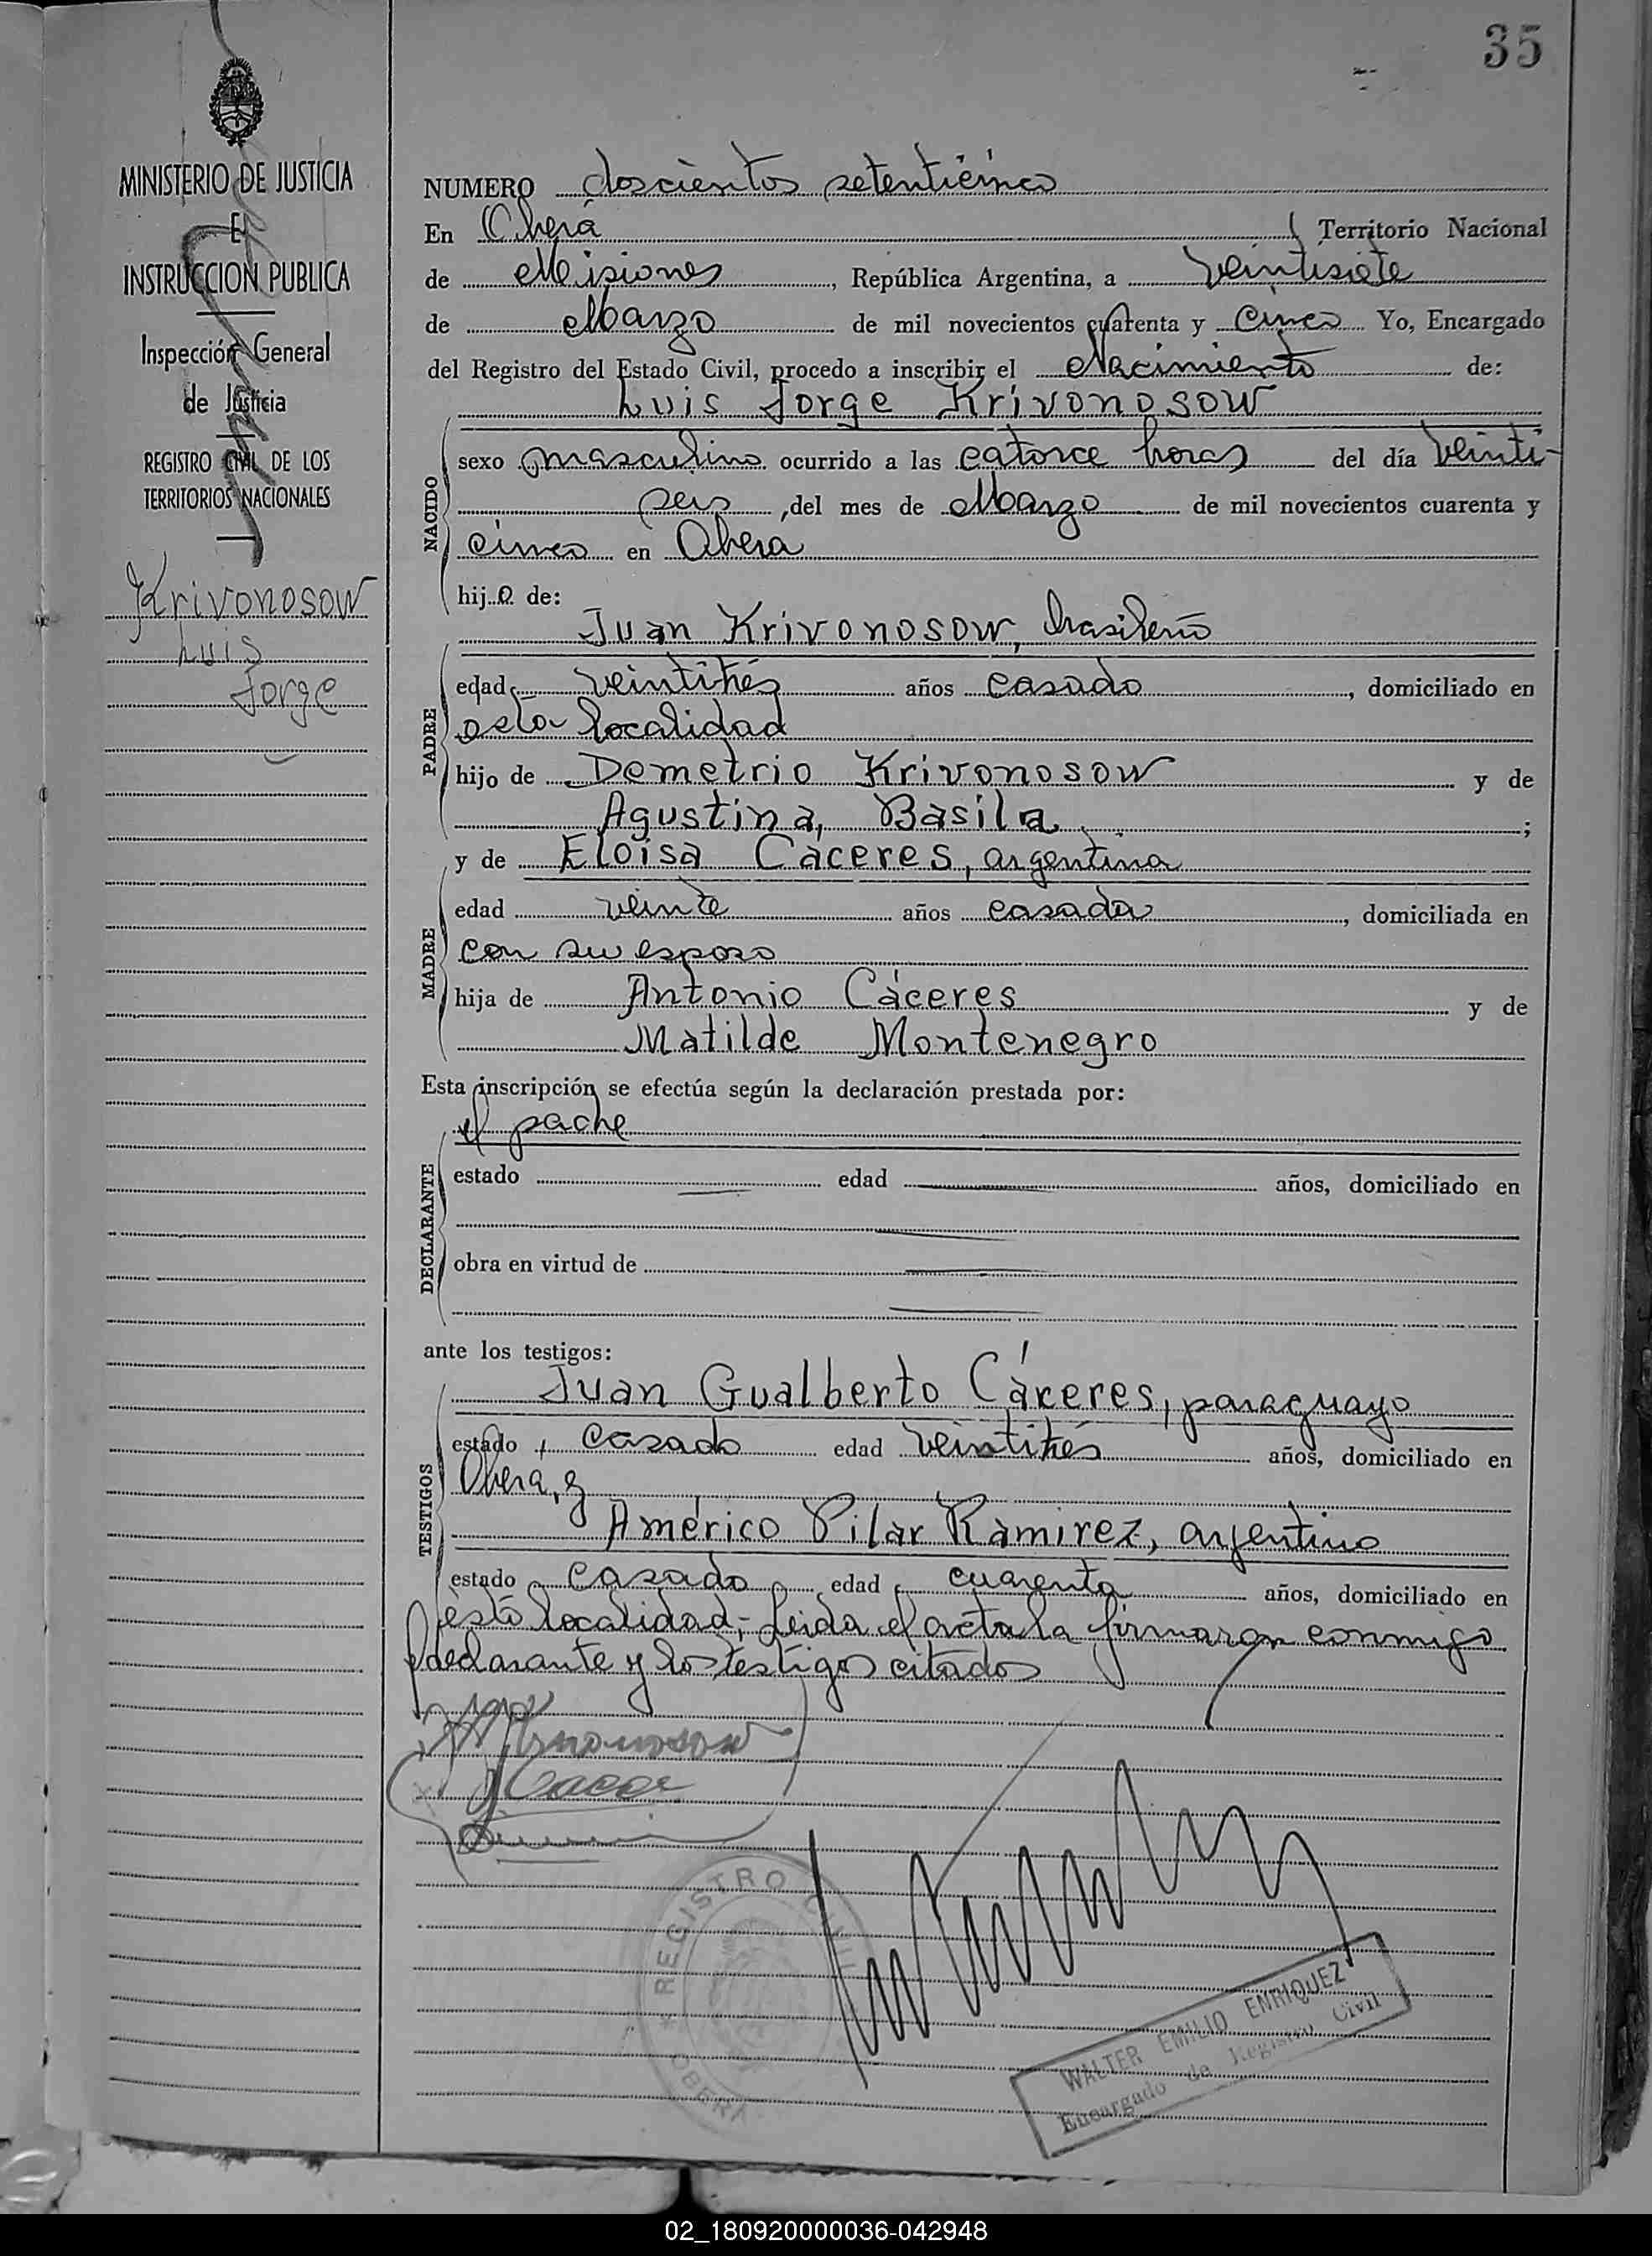 35
MINISTERIO DE JUSTICIA
E
INSTRUCCION PUBLICA
Inspección General
de Justicia
REGISTRO CIVIL DE LOS
TERRITORIOS NACIONALES
Krivonosow
Luis
Jorge
NUMERO doscientos setenticinco
En Oberá Territorio Nacional
de Misiones, República Argentina, a veintisiete
de Marzo de mil novecientos cuarenta y cinco Yo, Encargado
del Registro del Estado Civil, procedo a inscribir el Nacimiento de:
Luis Jorge Krivonosow
NACIDO
sexo masculino ocurrido a las catorce horas del día veinti-
seis, del mes de Marzo de mil novecientos cuarenta y
cinco en Obera
hijo de:
Juan Krivonosow, brasileño
PADRE
edad veintitrés años casado, domiciliado en
esta localidad
hijo de Demetrio Krivonosow y de
Agustina, Basila ;
y de Eloisa Cáceres, argentina
MADRE
edad veinte años casada, domiciliada en
con su esposo
hija de Antonio Cáceres y de
Matilde Montenegro
Esta inscripción se efectúa según la declaración prestada por:
el padre
DECLARANTE
estado edad años, domiciliado en
obra en virtud de
ante los testigos:
Juan Gualberto Cáceres, paraguayo
TESTIGOS
estado casado edad veintitrés años, domiciliado en
Obera, y
Américo Pilar Ramirez, argentino
estado casado edad cuarenta años, domiciliado en
esta localidad,- Leida el acta la firmaron conmigo
el declarante y los testigos citados
Krivonosow
REGISTRO CIVIL
OBERA
WALTER EMILIO ENRIQUEZ
Encargado de Registro Civil
02_180920000036-042948